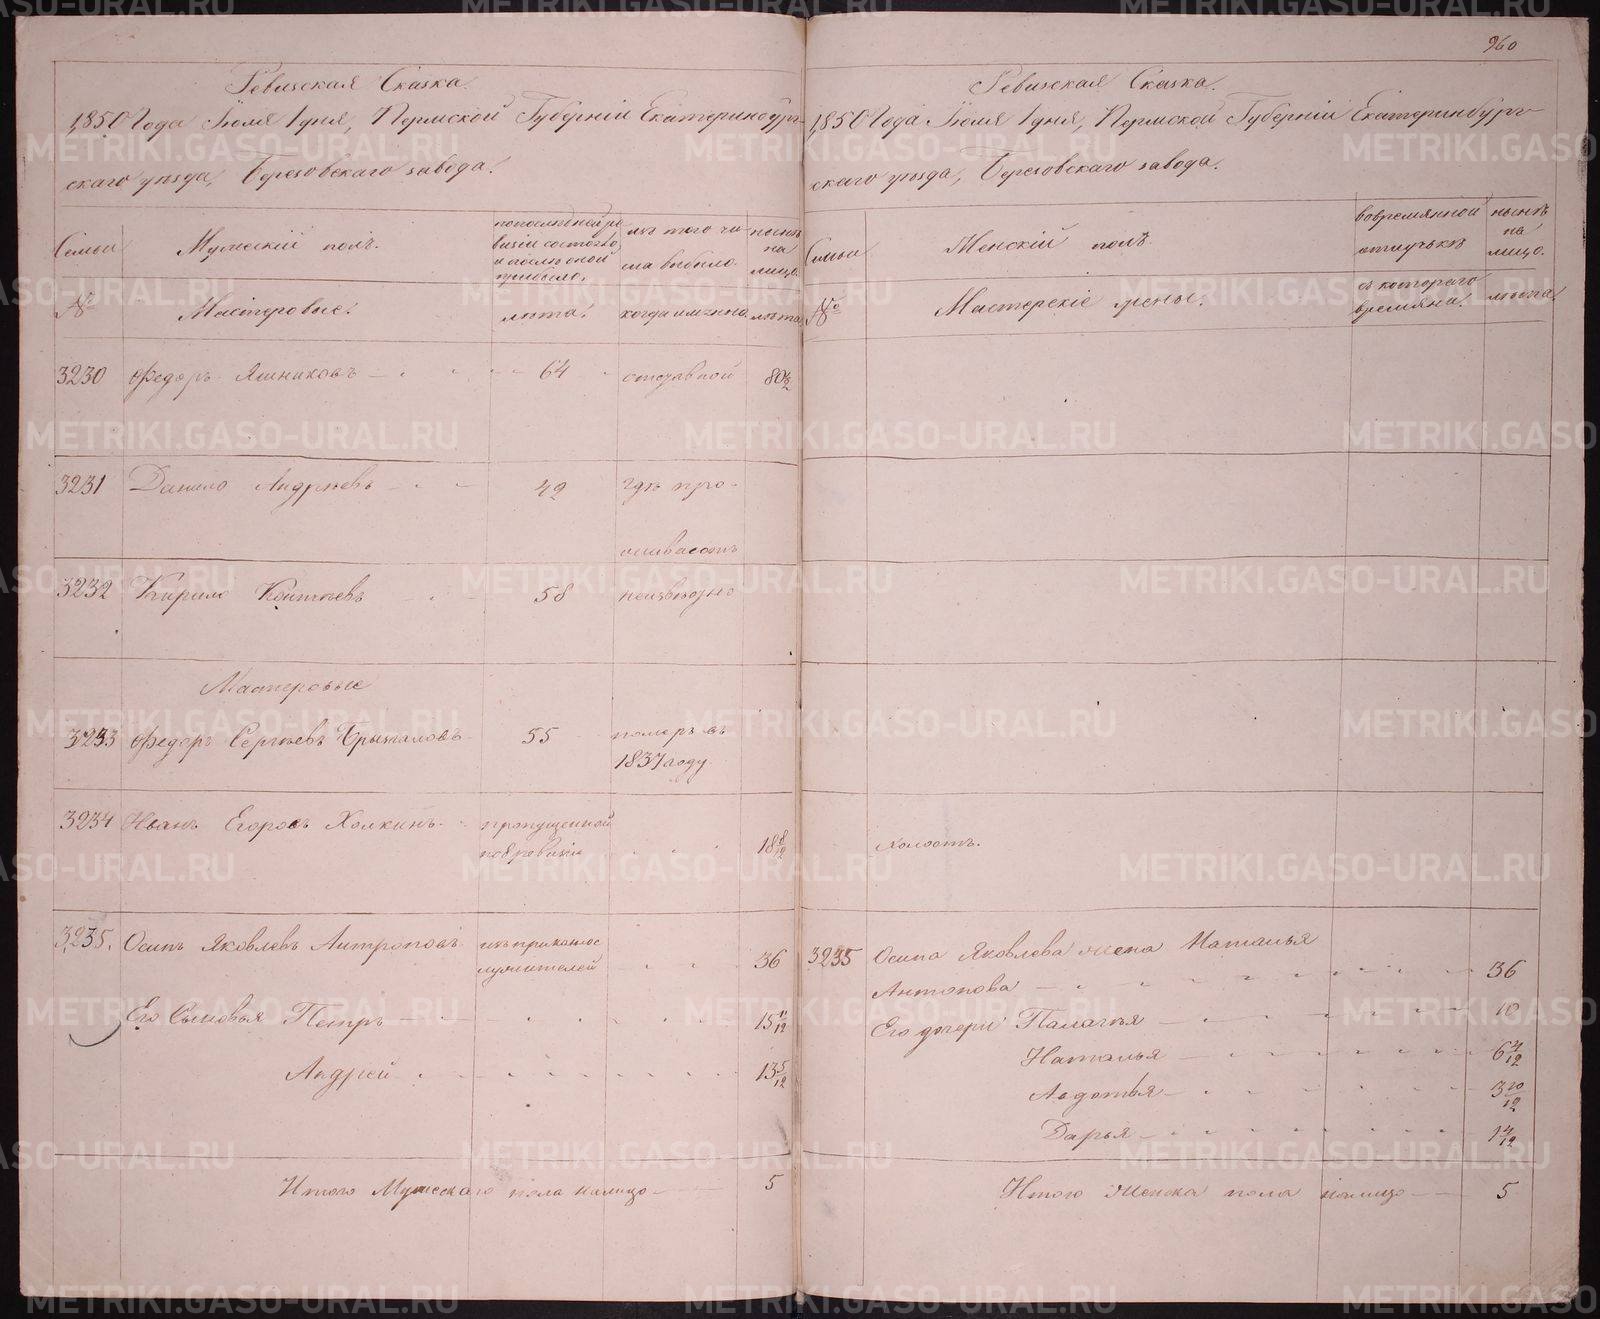 960
Ревизская Сказка.
1850 Года Іюля 1 дня, Пермской Губерніи Екатеринбург-
скаго уѣзда, Березовскаго завода.
Семьи
Мужескій полъ.
по послѣдней ре
визіи состояло,
и послѣ оной
прибыло.
изъ того чи
сла выбыло.
нынѣ
на
лицо.
№
Мастеровые.
лѣта.
когда именно.
лѣта
3230 Федоръ 64 отставной 80
3231 Данило Андреевъ 42 гдѣ про-
живаетъ
3232 Кирило 58 неизвѣстно
Мастеровые
3233 Федоръ Сергѣевъ Брызгаловъ 55 померъ въ
1837 году
3234 Иванъ Егоровъ Холкинъ пропущенной
по ревизіи 18 8/12
3235. Осипъ Яковлевъ Антроповъ изъ приказнос
лужителей 36
Его Сыновья Петръ 15 11/12
Андрей 13 5/12
Итого Мужескаго пола налицо 5
Ревизская Сказка.
1850 Года Іюля 1 дня, Пермской Губерніи Екатеринбург-
скаго уѣзда, Березовскаго завода.
Семьи
Женскій полъ.
во времянной
отлучькѣ
нынѣ
на
лицо.
№
Мастерскіе жены.
съ котораго
времяни.
лѣта.
холостъ.
3235 Осипа Яковлева жена Наталья
Антонова 36
Его дочери Палагья 10
Наталья 6
Авдотья 3 10/12
Дарья 1 4/12
Итого Женска пола налицо 5
METRIKI.GASO-URAL.RU